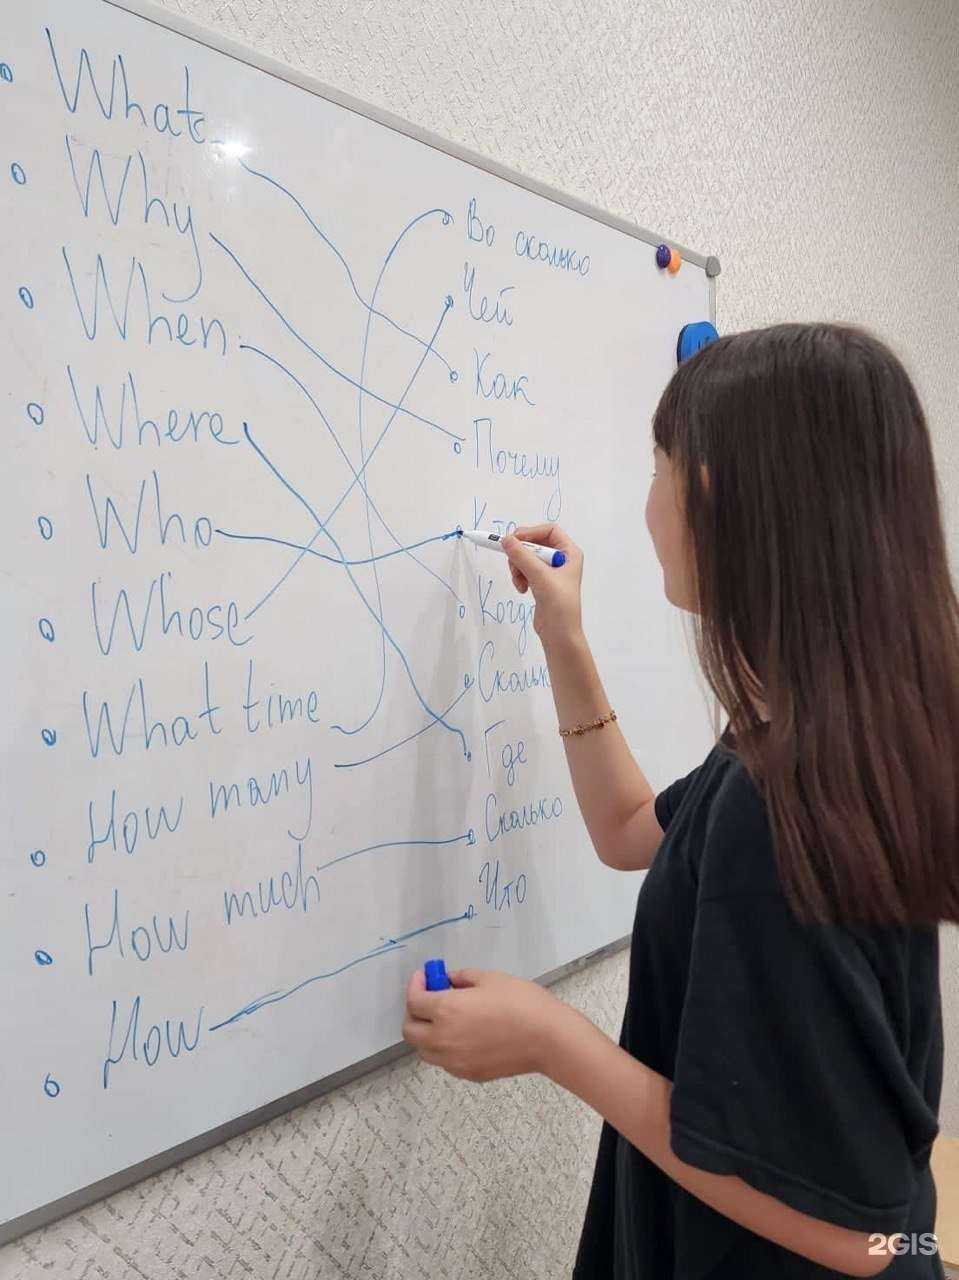 What
Why
When
Where
Who
Whose
What time
How many
How much
How
Во сколько
Чей
Как
Почему
Кто
Когда
Сколько
Где
Сколько
Что
2GIS